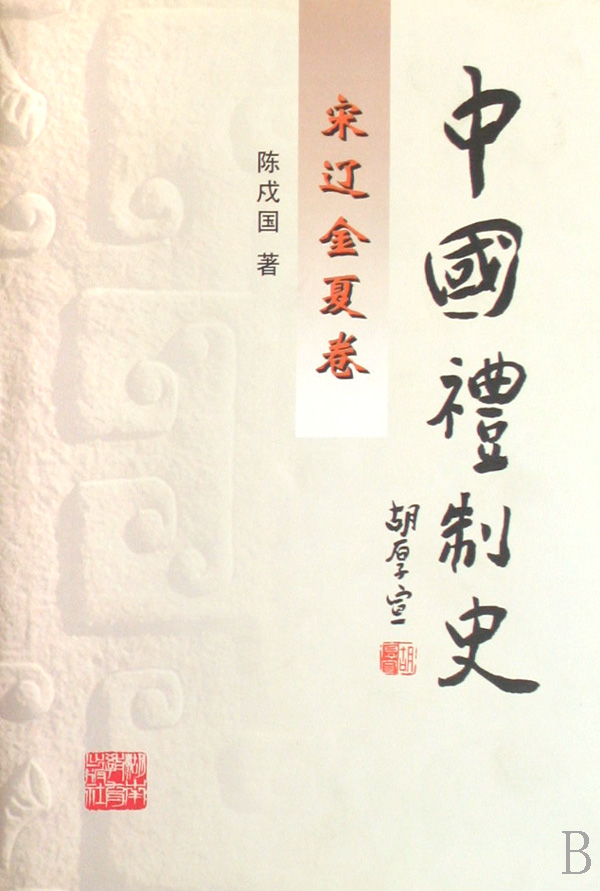 中國禮制史
胡厚宣
胡厚宣
宋辽金夏卷
陈戍国 著
湖南教育出版社
B